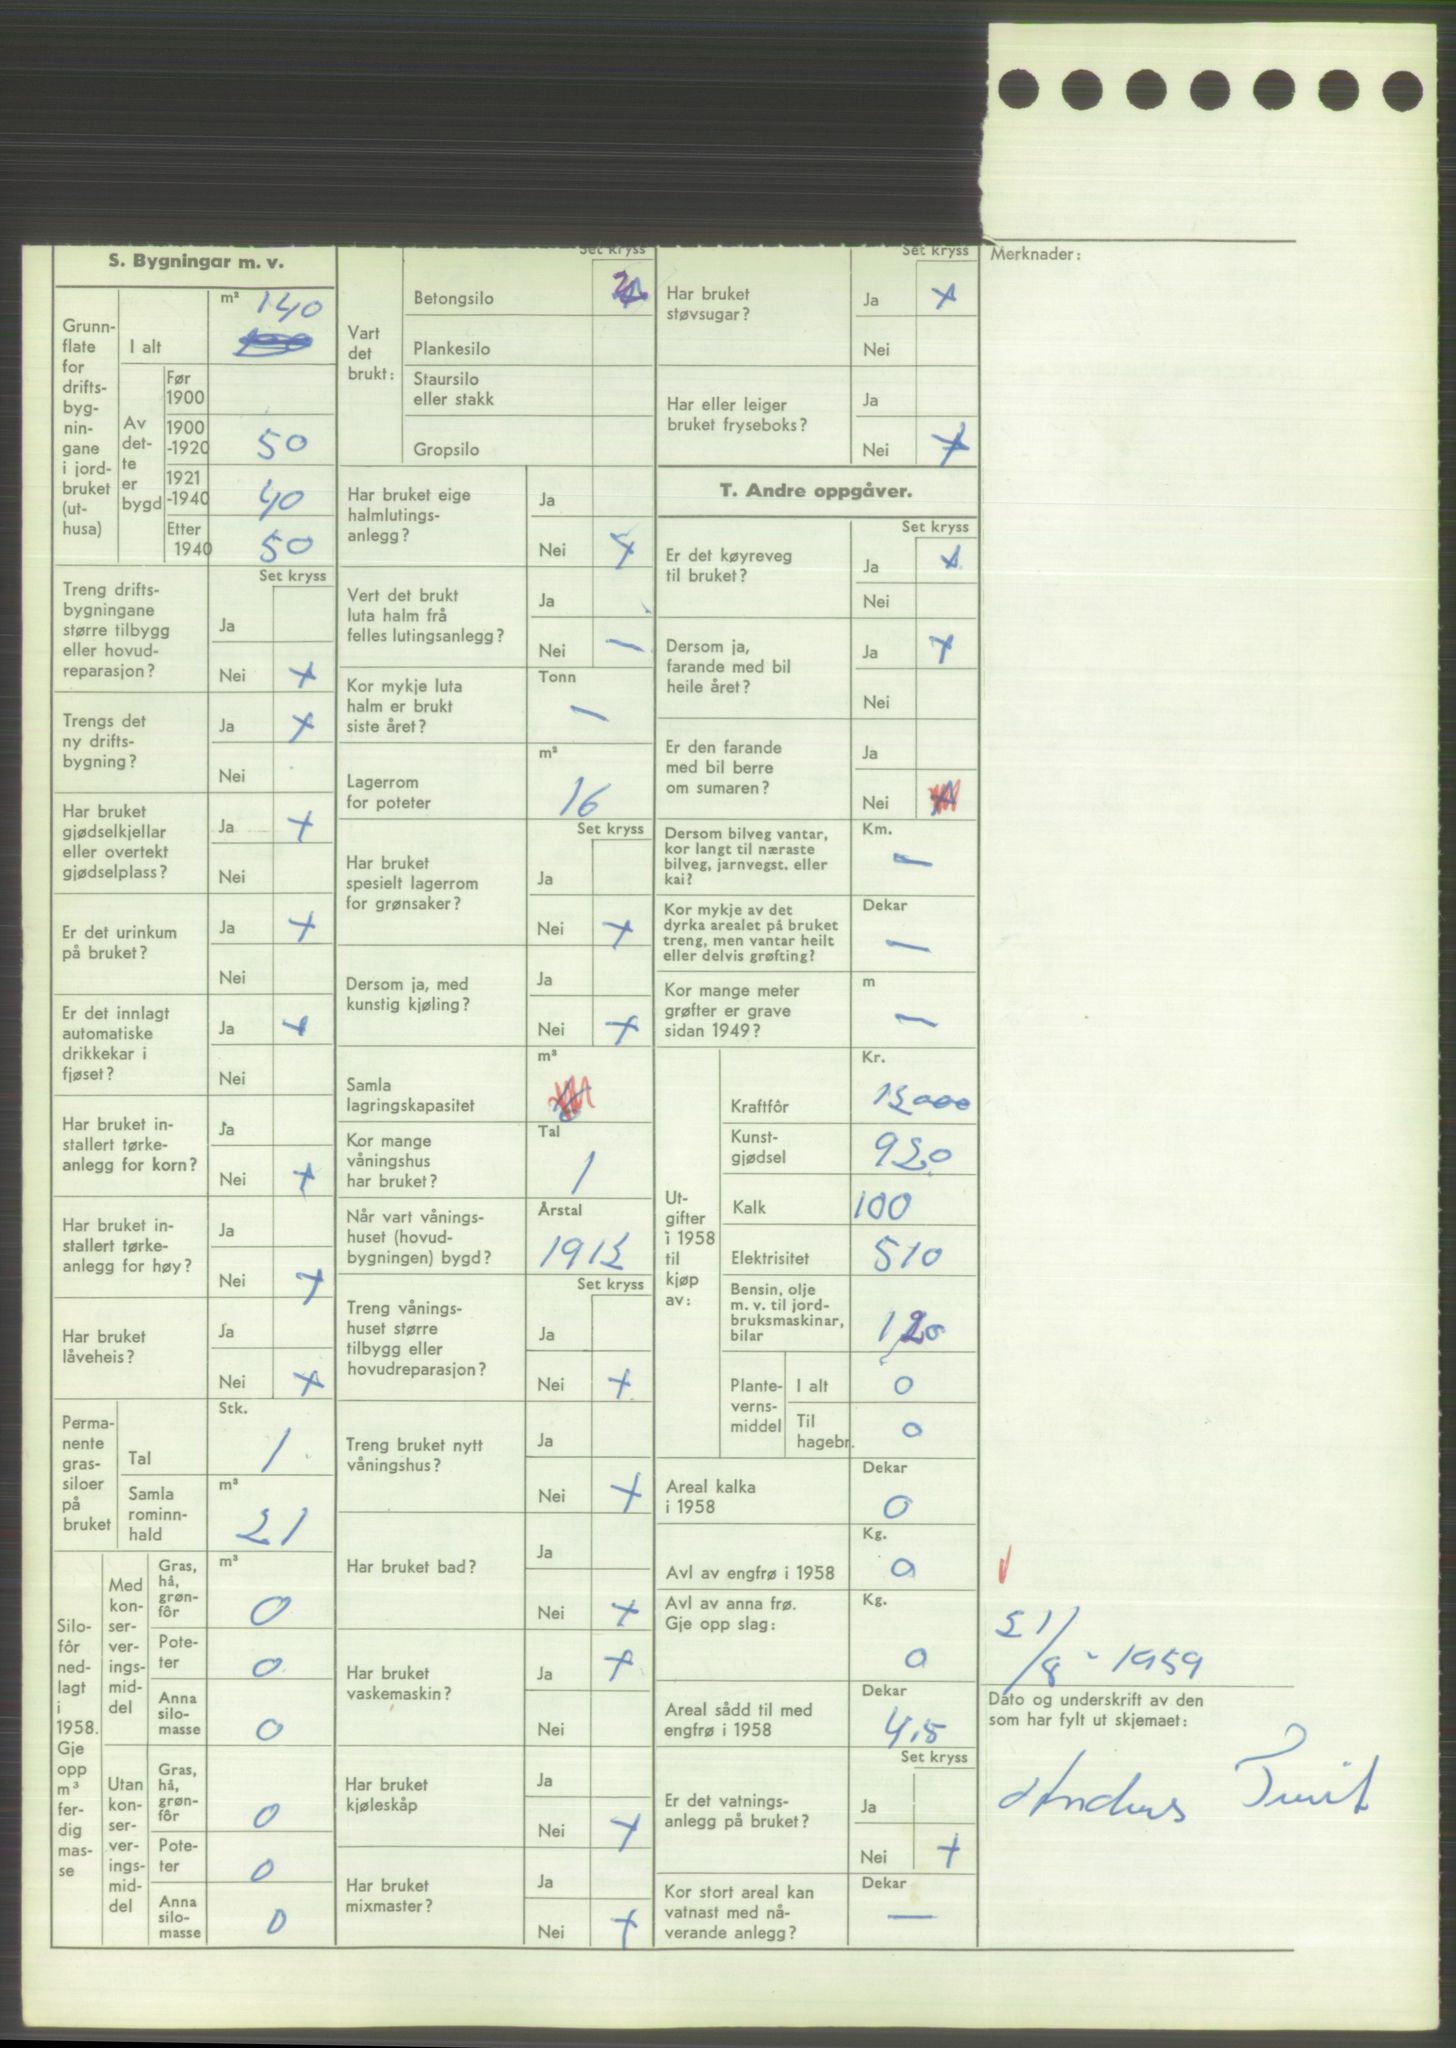 S. Bygningar m. v.
Grunn-
flate
for
drifts-
byg-
nin-
gane
i jord-
bruket
(ut-
husa)
I alt
m² 140
Av
det-
te
er
bygd
Før
1900
1900
-1920
50
1921
-1940
40
Etter
1940
50
Set kryss
Treng drifts-
bygningane
større tilbygg
eller hovud-
reparasjon?
Ja
Nei +
Trengs det
ny drifts-
bygning?
Ja +
Nei
Har bruket
gjødselkjellar
eller overtekt
gjødselplass?
Ja +
Nei
Er det urinkum
på bruket?
Ja +
Nei
Er det innlagt
automatiske
drikkekar i
fjøset?
Ja +
Nei
Har bruket in-
stallert tørke-
anlegg for korn?
Ja
Nei +
Har bruket in-
stallert tørke-
anlegg for høy?
Ja
Nei +
Har bruket
låveheis?
Ja
Nei +
Perma-
nente
gras-
siloer
på
bruket
Stk.
Tal 1
Samla
rominn-
hald
m³
21
Silo-
fôr
ned-
lagt
i
1958.
Gje
opp
m³
fer-
dig
mas-
se
Med
kon-
ser-
ver-
ings-
mid-
del
Gras,
hå,
grøn-
fôr
m³
0
Pote-
ter
0
Anna
silo-
masse
0
Utan
kon-
ser-
ver-
ings-
mid-
del
Gras,
hå,
grøn-
fôr
0
Pote-
ter
0
Anna
silo-
masse
0
Set kryss
Vart
det
brukt:
Betongsilo
Plankesilo
Staursilo
eller stakk
Gropsilo
Har bruket eige
halmlutings-
anlegg?
Ja
Nei +
Vert det brukt
luta halm frå
felles lutingsanlegg?
Ja
Nei —
Kor mykje luta
halm er brukt
siste året?
Tonn
—
Lagerrom
for poteter
m³
16
Set kryss
Har bruket
spesielt lagerrom
for grønsaker?
Ja
Nei +
Dersom ja, med
kunstig kjøling?
Ja
Nei +
Samla
lagringskapasitet
m³
Kor mange
våningshus
har bruket?
Tal
1
Når vart vånings-
huset (hovud-
bygningen) bygd?
Årstal
1912
Set kryss
Treng vånings-
huset større
tilbygg eller
hovudreparasjon?
Ja
Nei +
Treng bruket nytt
våningshus?
Ja
Nei +
Har bruket bad?
Ja
Nei +
Har bruket
vaskemaskin?
Ja +
Nei
Har bruket
kjøleskåp
Ja
Nei +
Har bruket
mixmaster?
Ja
Nei +
Set kryss
Har bruket
støvsugar?
Ja +
Nei
Har eller leiger
bruket fryseboks?
Ja
Nei +
T. Andre oppgåver.
Set kryss
Er det køyreveg
til bruket?
Ja +
Nei
Dersom ja,
farande med bil
heile året?
Ja +
Nei
Er den farande
med bil berre
om sumaren?
Ja
Nei
Dersom bilveg vantar,
kor langt til næraste
bilveg, jarnvegst. eller
kai?
Km.
—
Kor mykje av det
dyrka arealet på bruket
treng, men vantar heilt
eller delvis grøfting?
Dekar
—
Kor mange meter
grøfter er grave
sidan 1949?
m
—
Ut-
gifter
i 1958
til
kjøp
av:
Kr.
Kraftfôr 12000
Kunst-
gjødsel
920
Kalk 100
Elektrisitet 510
Bensin, olje
m. v. til jord-
bruksmaskinar,
bilar
120
Plante-
verns-
middel
I alt 0
Til
hagebr.
0
Areal kalka
i 1958
Dekar
0
Avl av engfrø i 1958
Kg.
0
Avl av anna frø.
Gje opp slag:
Kg.
0
Areal sådd til med
engfrø i 1958
Dekar
4,5
Set kryss
Er det vatnings-
anlegg på bruket?
Ja
Nei +
Kor stort areal kan
vatnast med nå-
verande anlegg?
Dekar
—
Merknader:
21/8 - 1959
Dato og underskrift av den
som har fylt ut skjemaet:
Anders